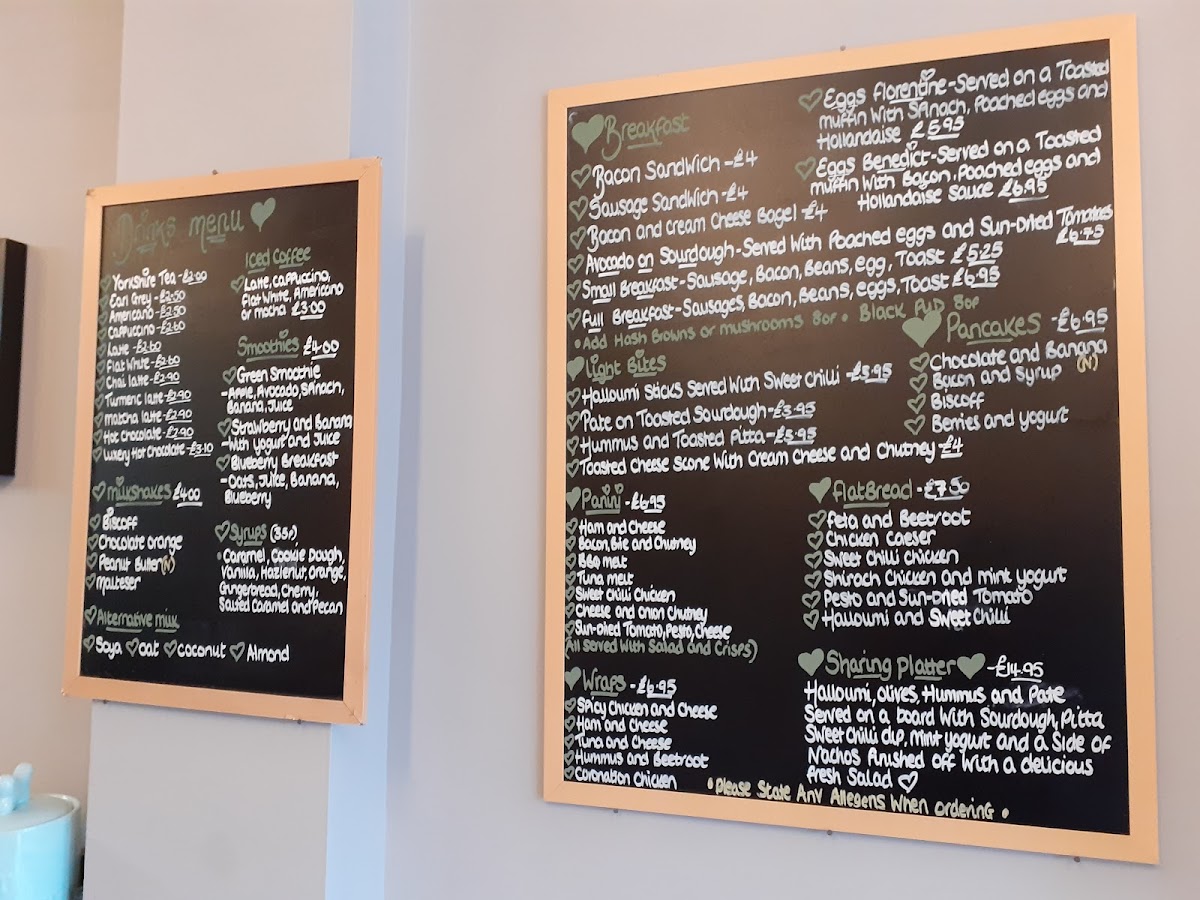 Drinks menu
Yorkshire Tea - £2.00
Earl Grey - £2.50
Americano - £2.50
Cappuccino - £2.60
Latte - £2.60
Flat White - £2.60
Chai latte - £2.90
Turmeric latte - £2.90
Matcha latte - £2.90
Hot chocolate - £2.90
Luxery Hot Chocolate - £3.10
milkshakes £4.00
Biscoff
Chocolate orange
Peanut Butter (N)
malteser
Iced Coffee
Latte, cappuccino,
Flat White, Americano
or mocha £3.00
Smoothies £4.00
Green Smoothie
- Apple, Avocado, Spinach,
Banana, Juice
Strawberry and Banana
- With yogurt and Juice
Blueberry Breakfast
- Oats, Juice, Banana,
Blueberry
Syrups (35p)
Caramel, Cookie Dough,
Vanilla, Hazlenut, Orange,
Gingerbread, Cherry,
Salted Caramel and Pecan
Alternative milk
Soya oat coconut Almond
Breakfast
Bacon Sandwich - £4
Sausage Sandwich - £4
Bacon and cream Cheese Bagel - £4
Eggs florentine - Served on a Toasted
muffin With Spinach, Poached eggs and
Hollandaise £5.95
Eggs Benedict - Served on a Toasted
muffin With Bacon, Poached eggs and
Hollandaise sauce £6.95
Avocado on Sourdough - Served With Poached eggs and Sun-Dried Tomatoes
£6.75
Small Breakfast - Sausage, Bacon, Beans, egg, Toast £5.25
Full Breakfast - Sausages, Bacon, Beans, eggs, Toast £6.95
• Add Hash Browns or mushrooms 80p • Black Pud 80p
Light Bites
Halloumi Sticks Served With Sweet Chilli - £5.95
Pate on Toasted Sourdough - £5.95
Hummus and Toasted Pitta - £5.95
Toasted Cheese Scone With Cream Cheese and Chutney - £4
Pancakes - £6.95
Chocolate and Banana
Bacon and Syrup (N)
Biscoff
Berries and yogurt
Panini - £6.95
Ham and Cheese
Bacon, Brie and Chutney
BBQ melt
Tuna melt
Sweet Chilli Chicken
Cheese and onion Chutney
Sun-Dried Tomato, Pesto, Cheese
(All served With Salad and Crisps)
Wraps - £6.95
Spicy Chicken and Cheese
Ham and Cheese
Tuna and Cheese
Hummus and Beetroot
Coronation Chicken
flatBread - £7.50
Feta and Beetroot
Chicken Caeser
Sweet Chilli Chicken
Shirach Chicken and mint yogurt
Pesto and Sun-Dried Tomato
Halloumi and Sweet Chilli
Sharing Platter - £14.95
Halloumi, olives, Hummus and Pate
Served on a board With Sourdough, Pitta
Sweet Chilli dip, mint yogurt and a Side of
Nachos finished off With a delicious
fresh Salad
• Please State Any Allegens When ordering •